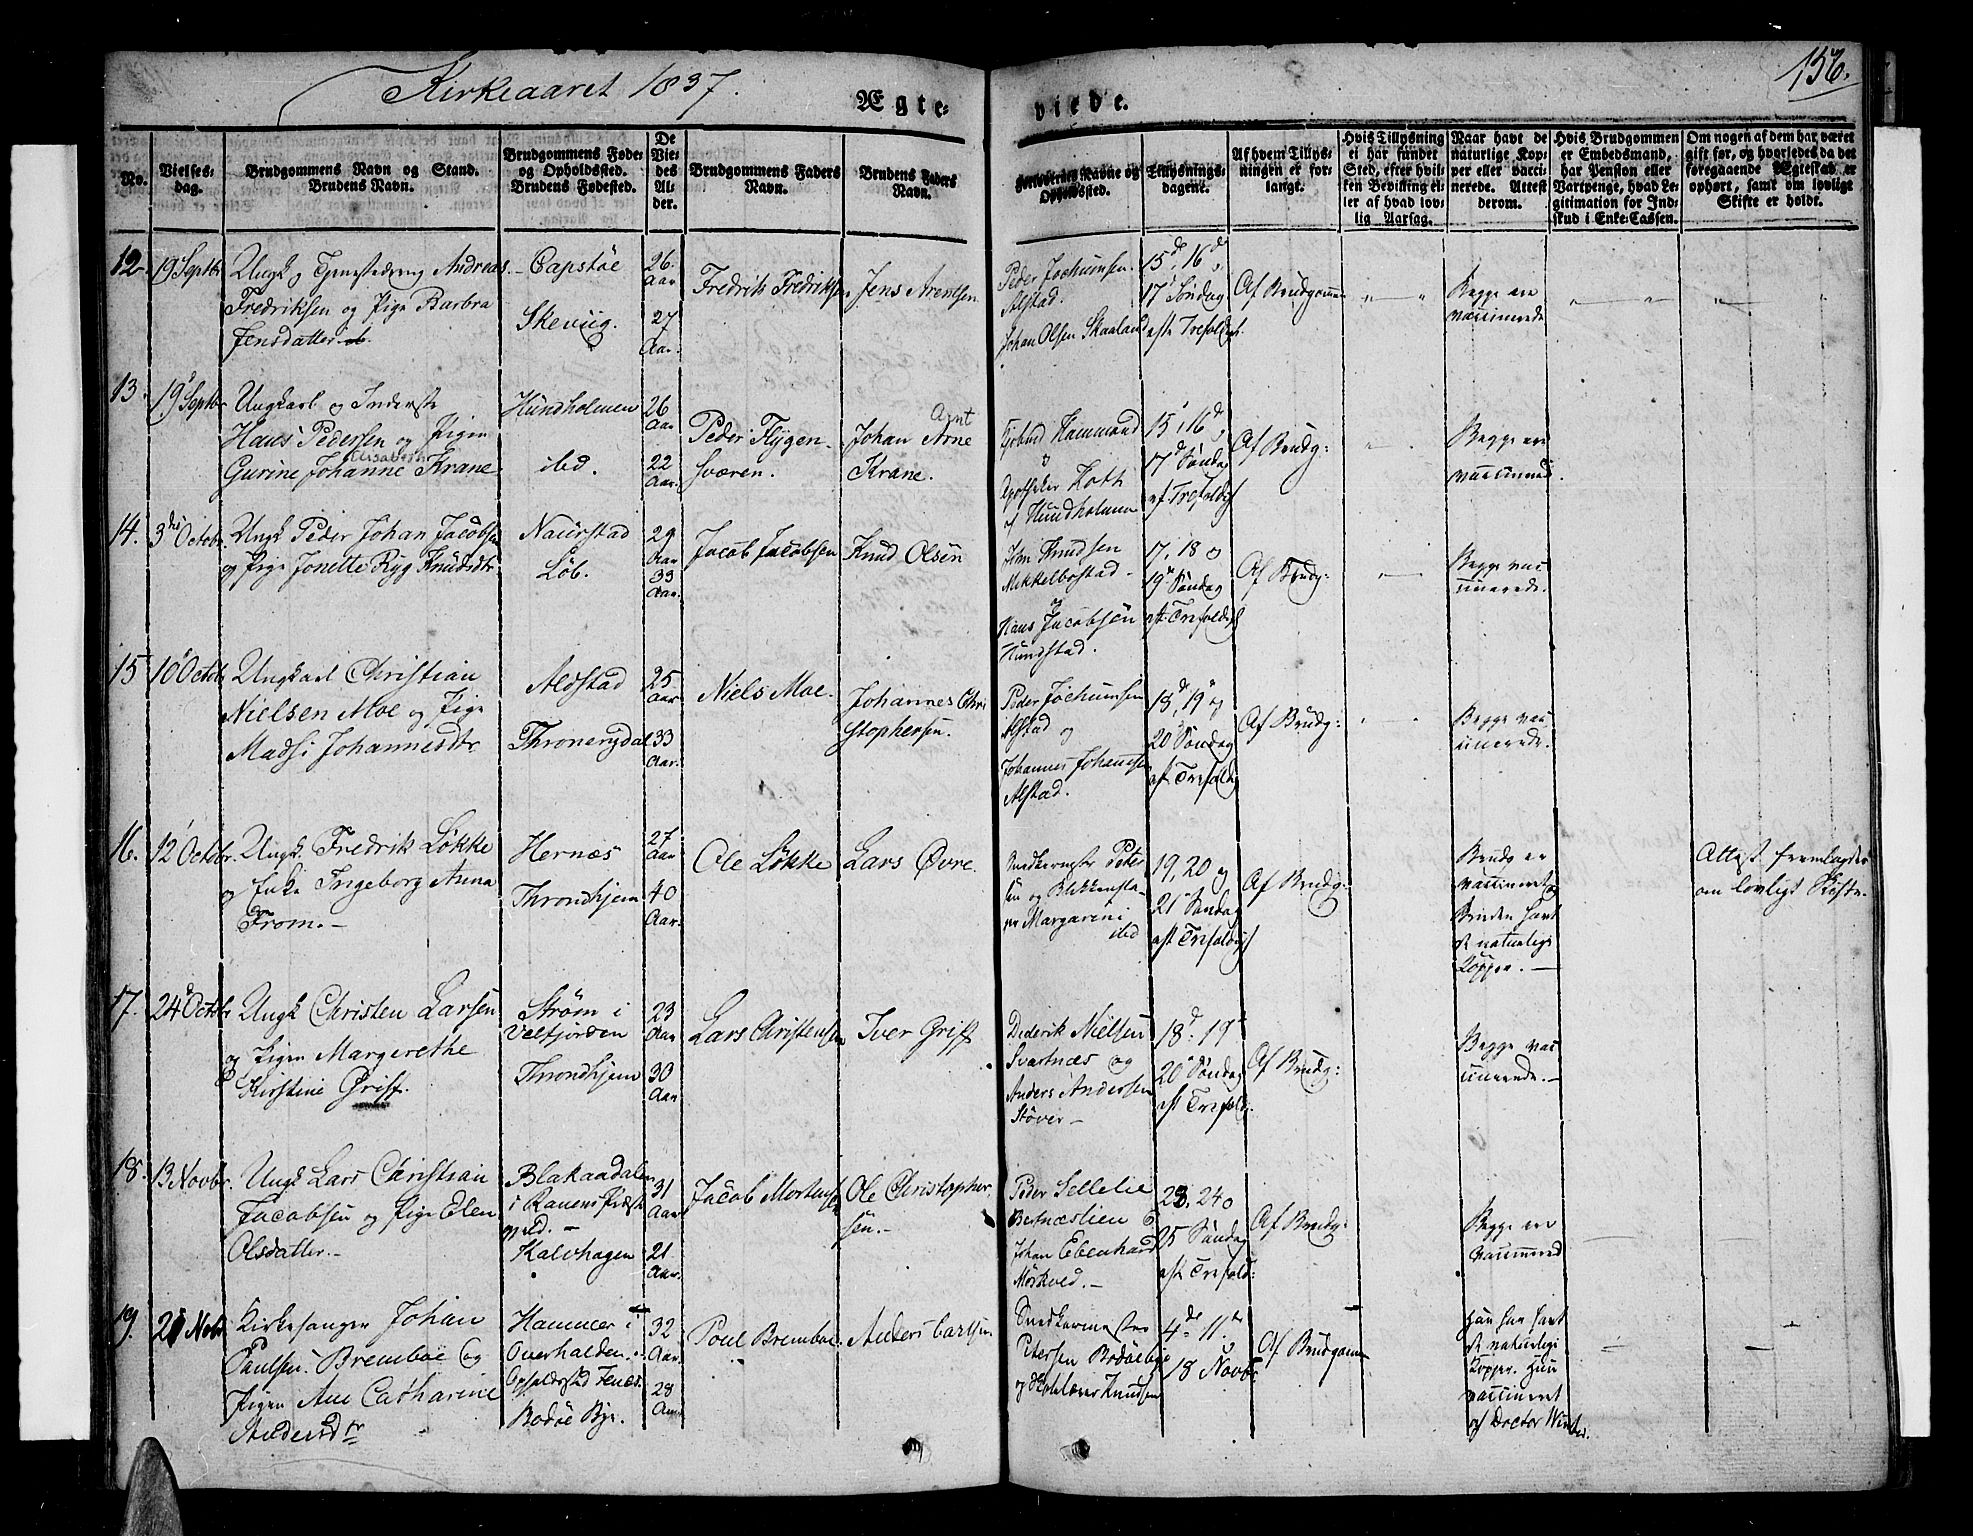 Kirkeaaret 1837.
Ægte-
viede.
156.
No.
Vielses-
dag.
Brudgommens Navn og Stand.
Brudens Navn.
Brudgommens Føde-
og Opholdssted.
Brudens Fødested.
De
Vie-
des
Al-
der.
Brudgommens Faders
Navn.
Brudens Faders
Navn.
Forlovernes Navne og
Opholdssted.
Tillysnings-
dagene.
Af hvem Tillys-
ningen er for-
langt.
Hvis Tillysning
ei har fundet
Sted, efter hvil-
ken Bevilling el-
ler af hvad lov-
lig Aarsag.
Naar have de
naturlige Kop-
per eller vacci-
nerede. Attest
derom.
Hvis Brudgommen
er Embedsmand,
har Pension eller
Vartpenge, hvad Le-
gitimation for Ind-
skud i Enke-Cassen.
Om nogen af dem har været
gift før, og hvorledes da det
foregaaende Ægteskab er
ophørt, samt om lovligt
Skifte er holdt.
12.
19 Septbr
Ungk og Tjenestedreng Andreas
Fredriksen og Pige Barbra
Jensdatter
Capstöe
Skeviig.
26.
Aar
27
Aar.
Fredrik Fredriksen
Jens Arentsen
Peder Jochumsen
Alstad.
Johan Olsen Skaaland
15de, 16de,
17 Søndag
eft Trefoldigh.
Af Brudgommen
Begge ere
vaccinerede
13.
19 Septbr
Ungkarl og Inderste
Hans Pedersen og Pigen
Elisabeth
Gurine Johanne Krane
Hundholmen
ibd.
26
Aar
22
Aar.
Peder Flygen-
sværen.
Agnt
Johan Arne
Krane.
Hammond
og
Apotheker Koth
af Hundholmen
15, 16d,
17d Søndag
ef. Trefoldigh
Af Brudg:
Begge ere
vaccinered.
14.
3die Octobr.
Ungk Peder Johan Jacobsen
og Pige Jonette Ryg Knudsdtr
Naurstad
Løb.
29
Aar
33
Aar.
Jacob Jacobsen
Knud Olsen
Jon Knudsen
Mikkelbostad
og
Hans Jacobsen
Hundstad.
17, 18 og
19de Søndag
eft. Trefoldigh
Af Brudg:
Begge vac
cinerede.
15
10 Octobr
Ungkarl Christian
Nielsen Moe og Pige
Madsi Johannesdtr.
Alstad
Thronengdal
25
Aar
33
Aar.
Niels Moe.
Johannes Chri
stophersen.
Peder Jochumsen
Alstad og
Johannes Johannsen
Alstad.
18d, 19 og
20 Søndag
eft Trefoldig
Af Brudg:
Begge vac
cinerede.
16.
12 Octobr.
Ungk. Fredrik Løkke
og Enke Ingeborg Anna
From.-
Hernæs
Throndhjem
27
Aar
40
Aar.
Ole Løkke
Lars Øvre.
Snedkermester Peter
sen og Blikkensla
ger Margarini
ibd
19, 20 og
21 Søndag
eft Trefoldigh
Af Brudg:
Brudg er
vaccineret og
Bruden havt
d naturlige
Kopper. —
Attest fremlagdes
om lovligt Skifte.
17.
24 Octobr
Ungk Christen Larsen
og Pigen Margerethe
Kirstine Griff.
Strøm i
Velfjorden
Throndhjem
23
Aar
30
Aar
Lars Christensen
Iver Griff
Diderik Nielsen
Svartnæs og
Anders Andersen
Støver -
18d. 19
20 Søndag
eft Trefoldi.
Af Brudg:
Begge vac
cinerede.-
18.
13 Novbr.
Ungk Lars Christian
Jacobsen og Pige Elen
Olsdatter.-
Blakaadalen
i Ranens Præste
gjeld. -
Kalvhagen
31
Aar
21
Aar.
Jacob Mortensen
Ole Christopher
sen.-
Peder Sellelie
Bertnæslien &
Johan Ebenhard
Mørkved.-
23, 24 o
25 Søndag
eft Trefold:
Af Brudg:
Begge ere
vaccinered
19.
21 Nobr
Kirkesanger Johan
Paulsen Bremboe og
Pigen Ane Catharine
Andersdtr
Hammer i
Overhalden.
Opholdssted
Bodøe Bye.
32
Aar.
28
Aar
Poul Bremboe
Anders Carlsen
Snedkermester
Petersen Bodøebye
og Knudsen
4de 11te
18 Novbr
Af Brudgomm
Han har havt
d naturlige
Kopper. Hun
vaccineret
af Doctor